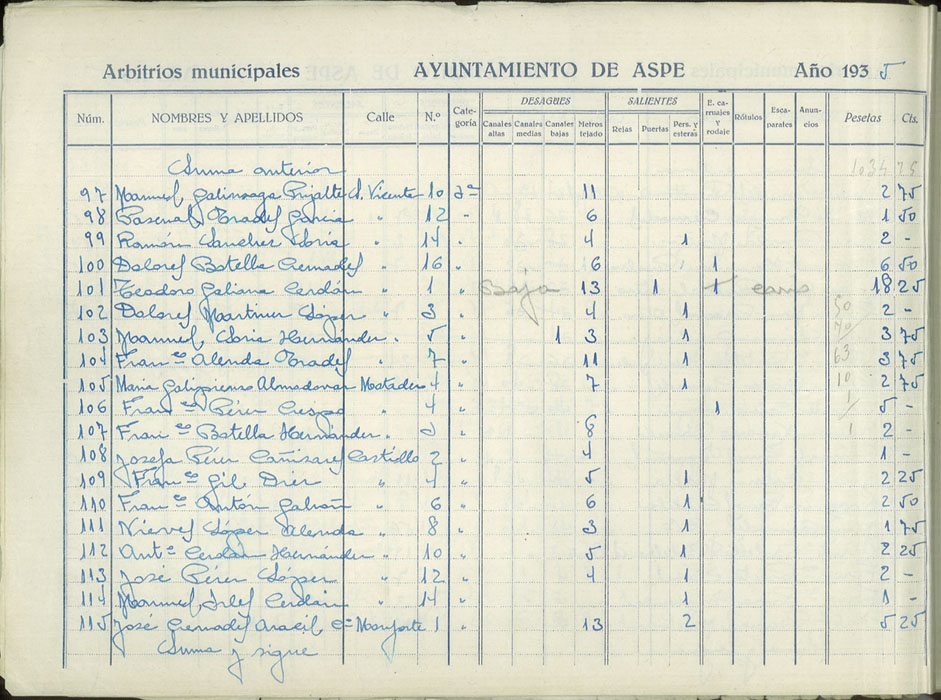 Arbitrios municipales AYUNTAMIENTO DE ASPE Año 1935
Núm. NOMBRES Y APELLIDOS Calle N.º Categoría DESAGUES SALIENTES E. carruajes y rodaje Rótulos Escaparates Anuncios Pesetas Cts.
Canales altas Canales medias Canales bajas Metros tejado Rejas Puertas Pers. y esteras
Suma anterior 1034 25
97 Manuel Galinsoga Prijalte S. Vicente 10 2ª 11 2 75
98 Pascual Prades Garcia " 12 - 6 1 50
99 Ramón Sanchez Soria " 14 " 4 1 2 -
100 Dolores Botella Cremades " 16 " 16 1 6 50
101 Teodoro Galiana Cerdán " 1 " Baja 13 1 1 carro 18 25
102 Dolores Martinez López " 3 " 4 1 2 -
103 Manuel Soria Hernández " 5 " 1 3 1 3 75
104 Franco Alenda Prades " 7 " 11 1 3 75
105 Maria Galipienso Almodovar Matadero 4 " 7 1 2 75
106 Franco Pérez Crespo " 4 " 1 5 -
107 Franco Botella Hernández " " 8 2 -
108 Josefa Pérez Cañizares Castillo 2 " 4 1 -
109 Franco Gil Diez " 4 " 5 1 2 25
110 Franco Antón Galvañ " 6 " 6 1 2 50
111 Nieves López Alenda " 8 " 3 1 1 75
112 Antº Cerdán Hernández " 10 " 5 1 2 25
113 José Pérez López " 12 " 4 1 2 -
114 Manuel Irles Cerdán " 14 " 1 1 -
115 José Cremades Aracil Cª Monforte 1 " 13 2 5 25
Suma y sigue